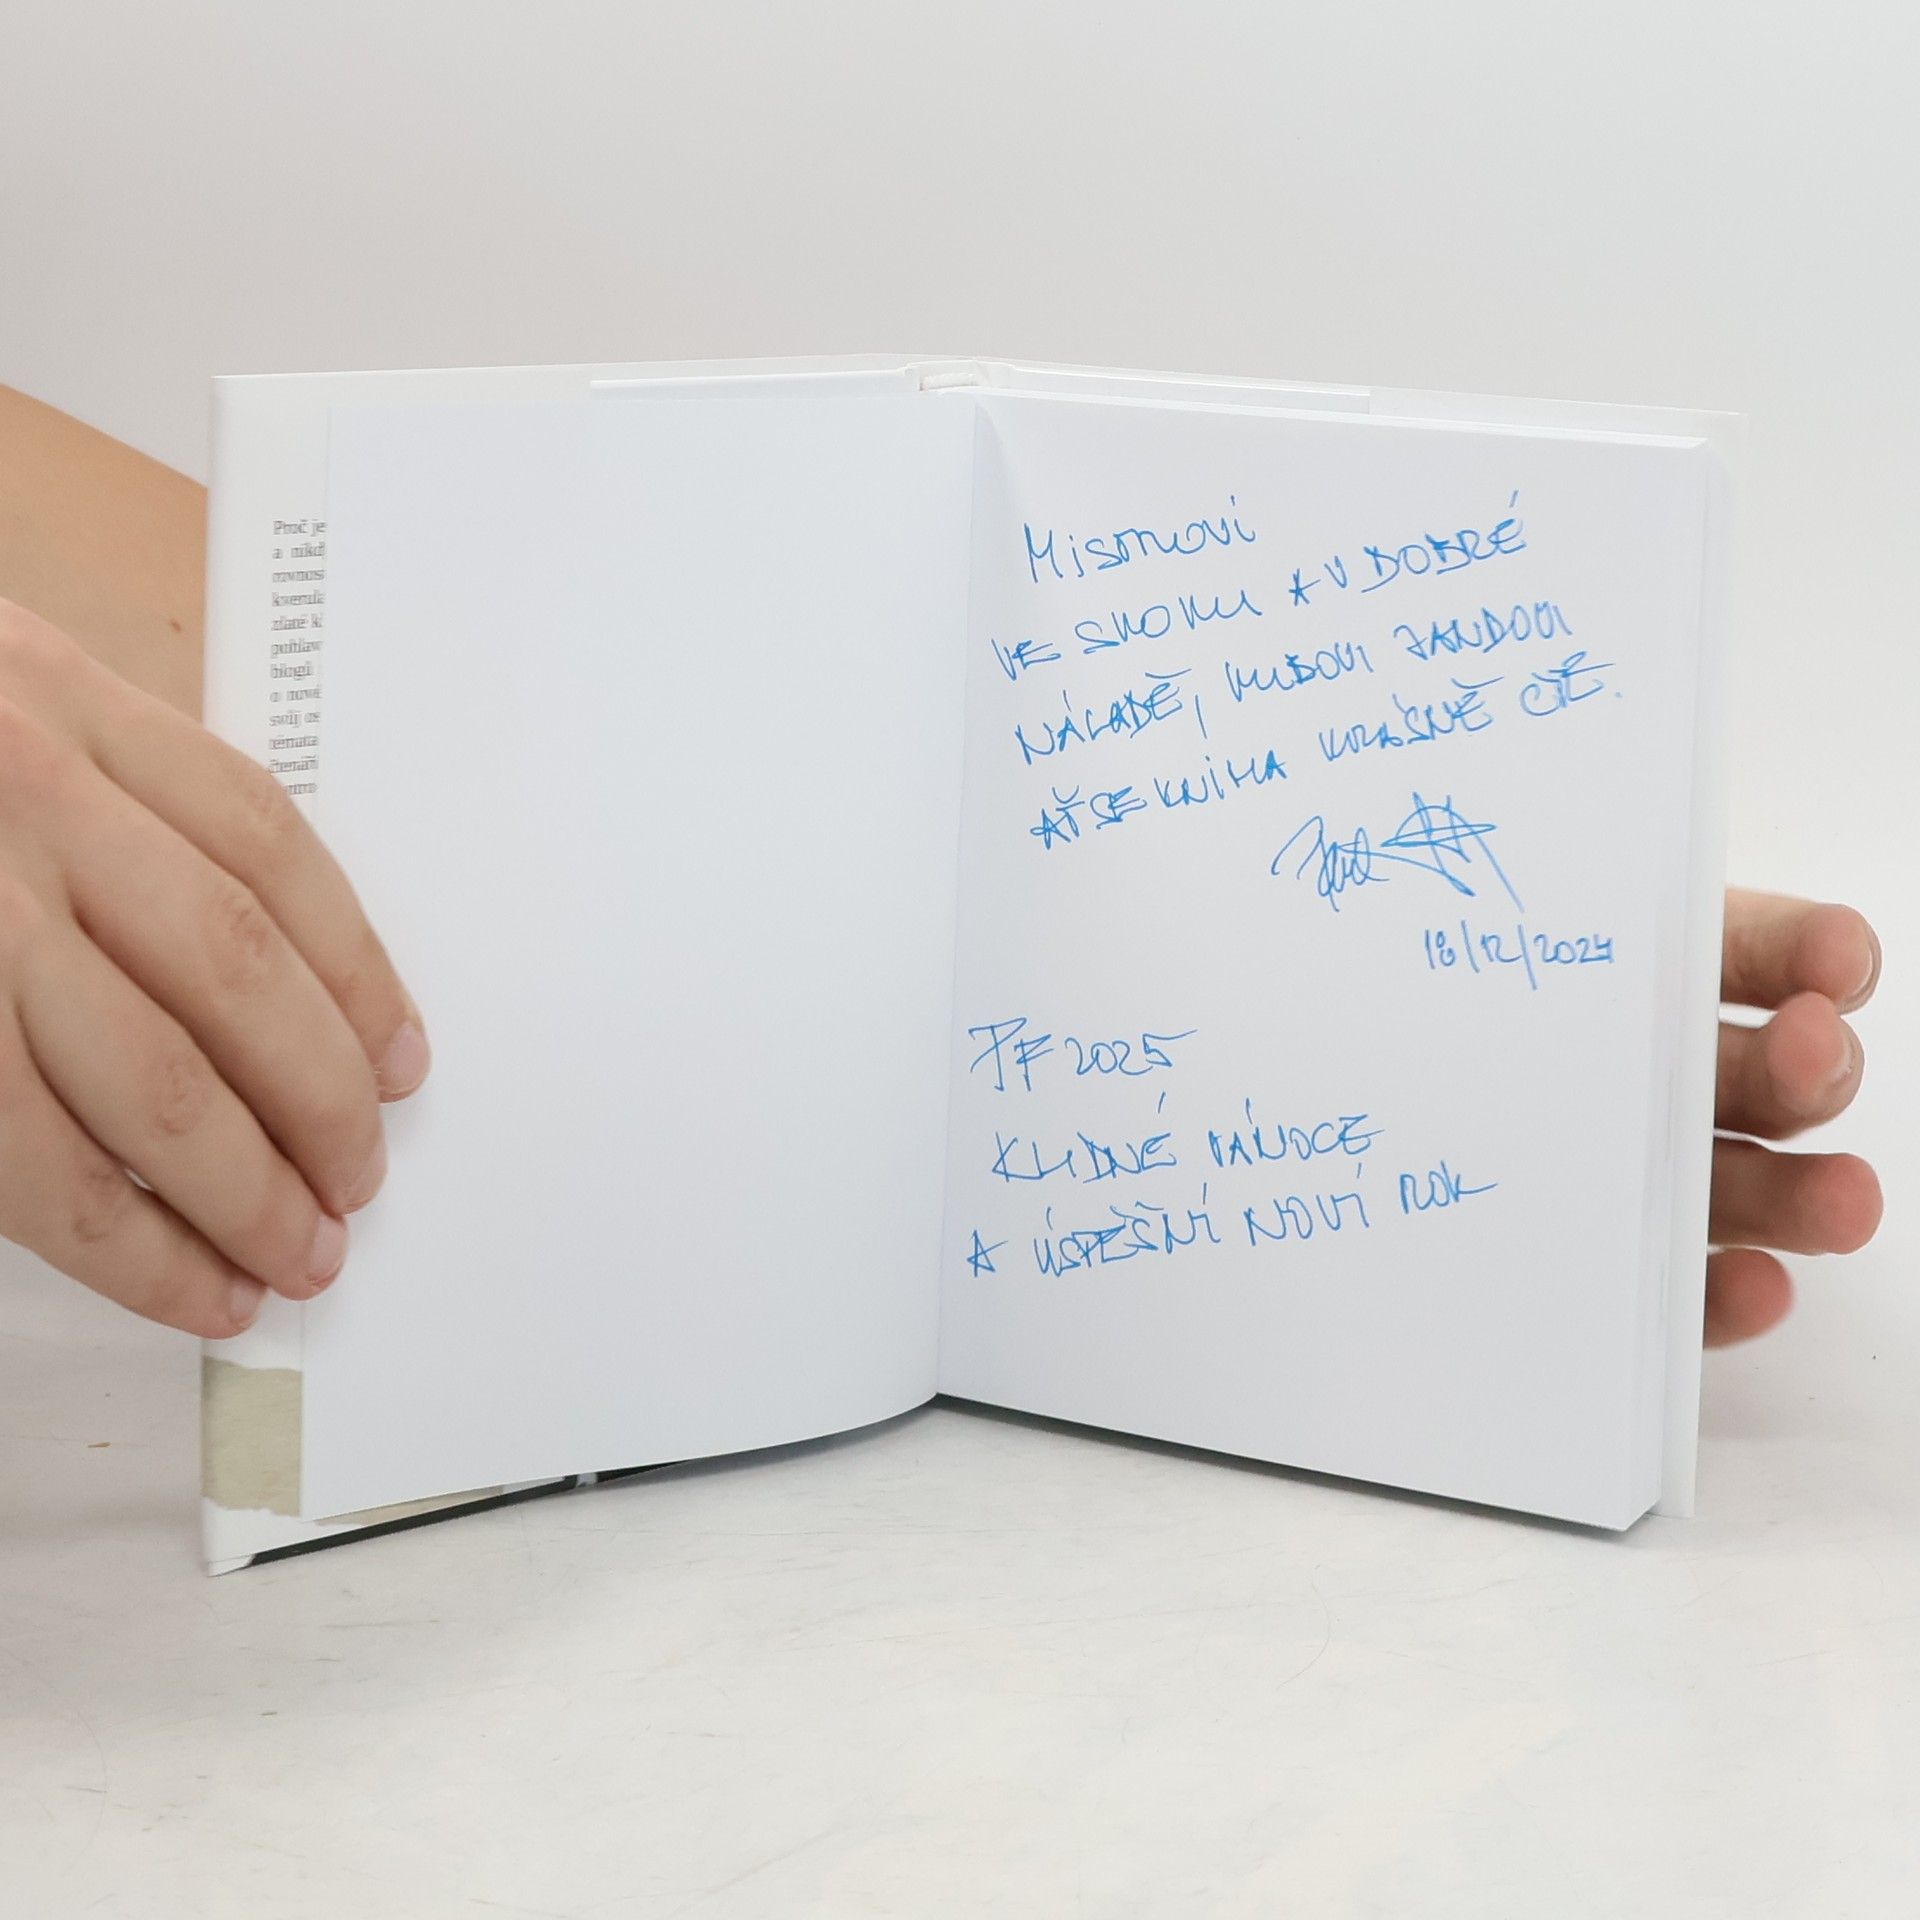 Proč je
a nikd
rovnos
zlaté k
pohlav
blogů
o nové
svůj os
témata
čtenáři
VE SKOKU A V DOBRÉ
NÁLADĚ, KUBOVI JANDOVI
AŤ SE KNIHA KRÁSNĚ ČTE.
18/12/2024
PF 2025
KLIDNÉ VÁNOCE
A ÚSPĚŠNÍ NOVÍ ROK